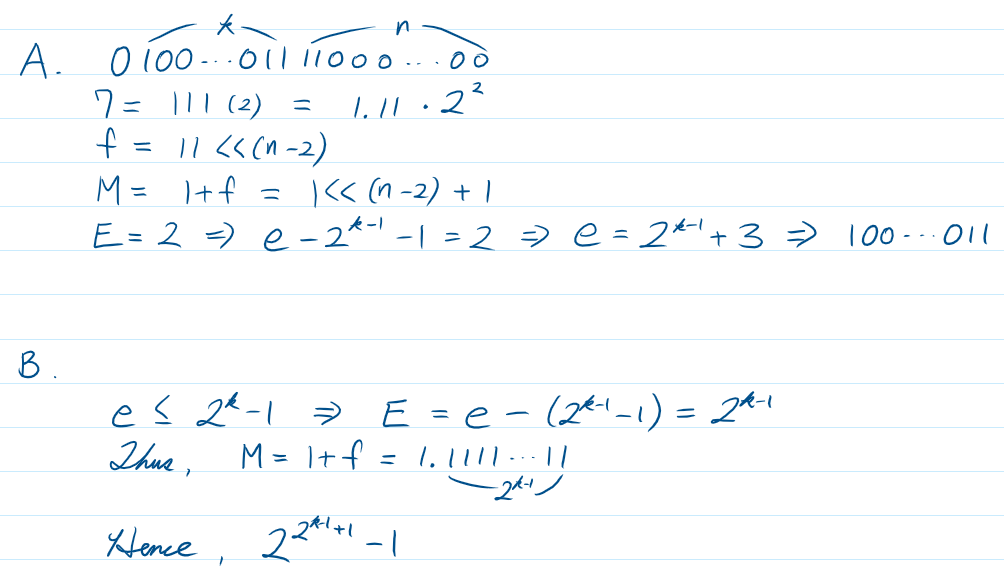 k n
A. 0 100...011 11000...00
7 = 111 (2) = 1.11 · 2²
f = 11 << (n-2)
M = 1+f = 1<< (n-2) + 1
E = 2 ⇒ e - 2^{k-1} - 1 = 2 ⇒ e = 2^{k-1} + 3 ⇒ 100...011
B.
e ≤ 2^k - 1 ⇒ E = e - (2^{k-1} - 1) = 2^{k-1}
Thus, M = 1+f = 1.1111...11
2^{k-1}
Hence, 2^{2^{k-1}+1} - 1